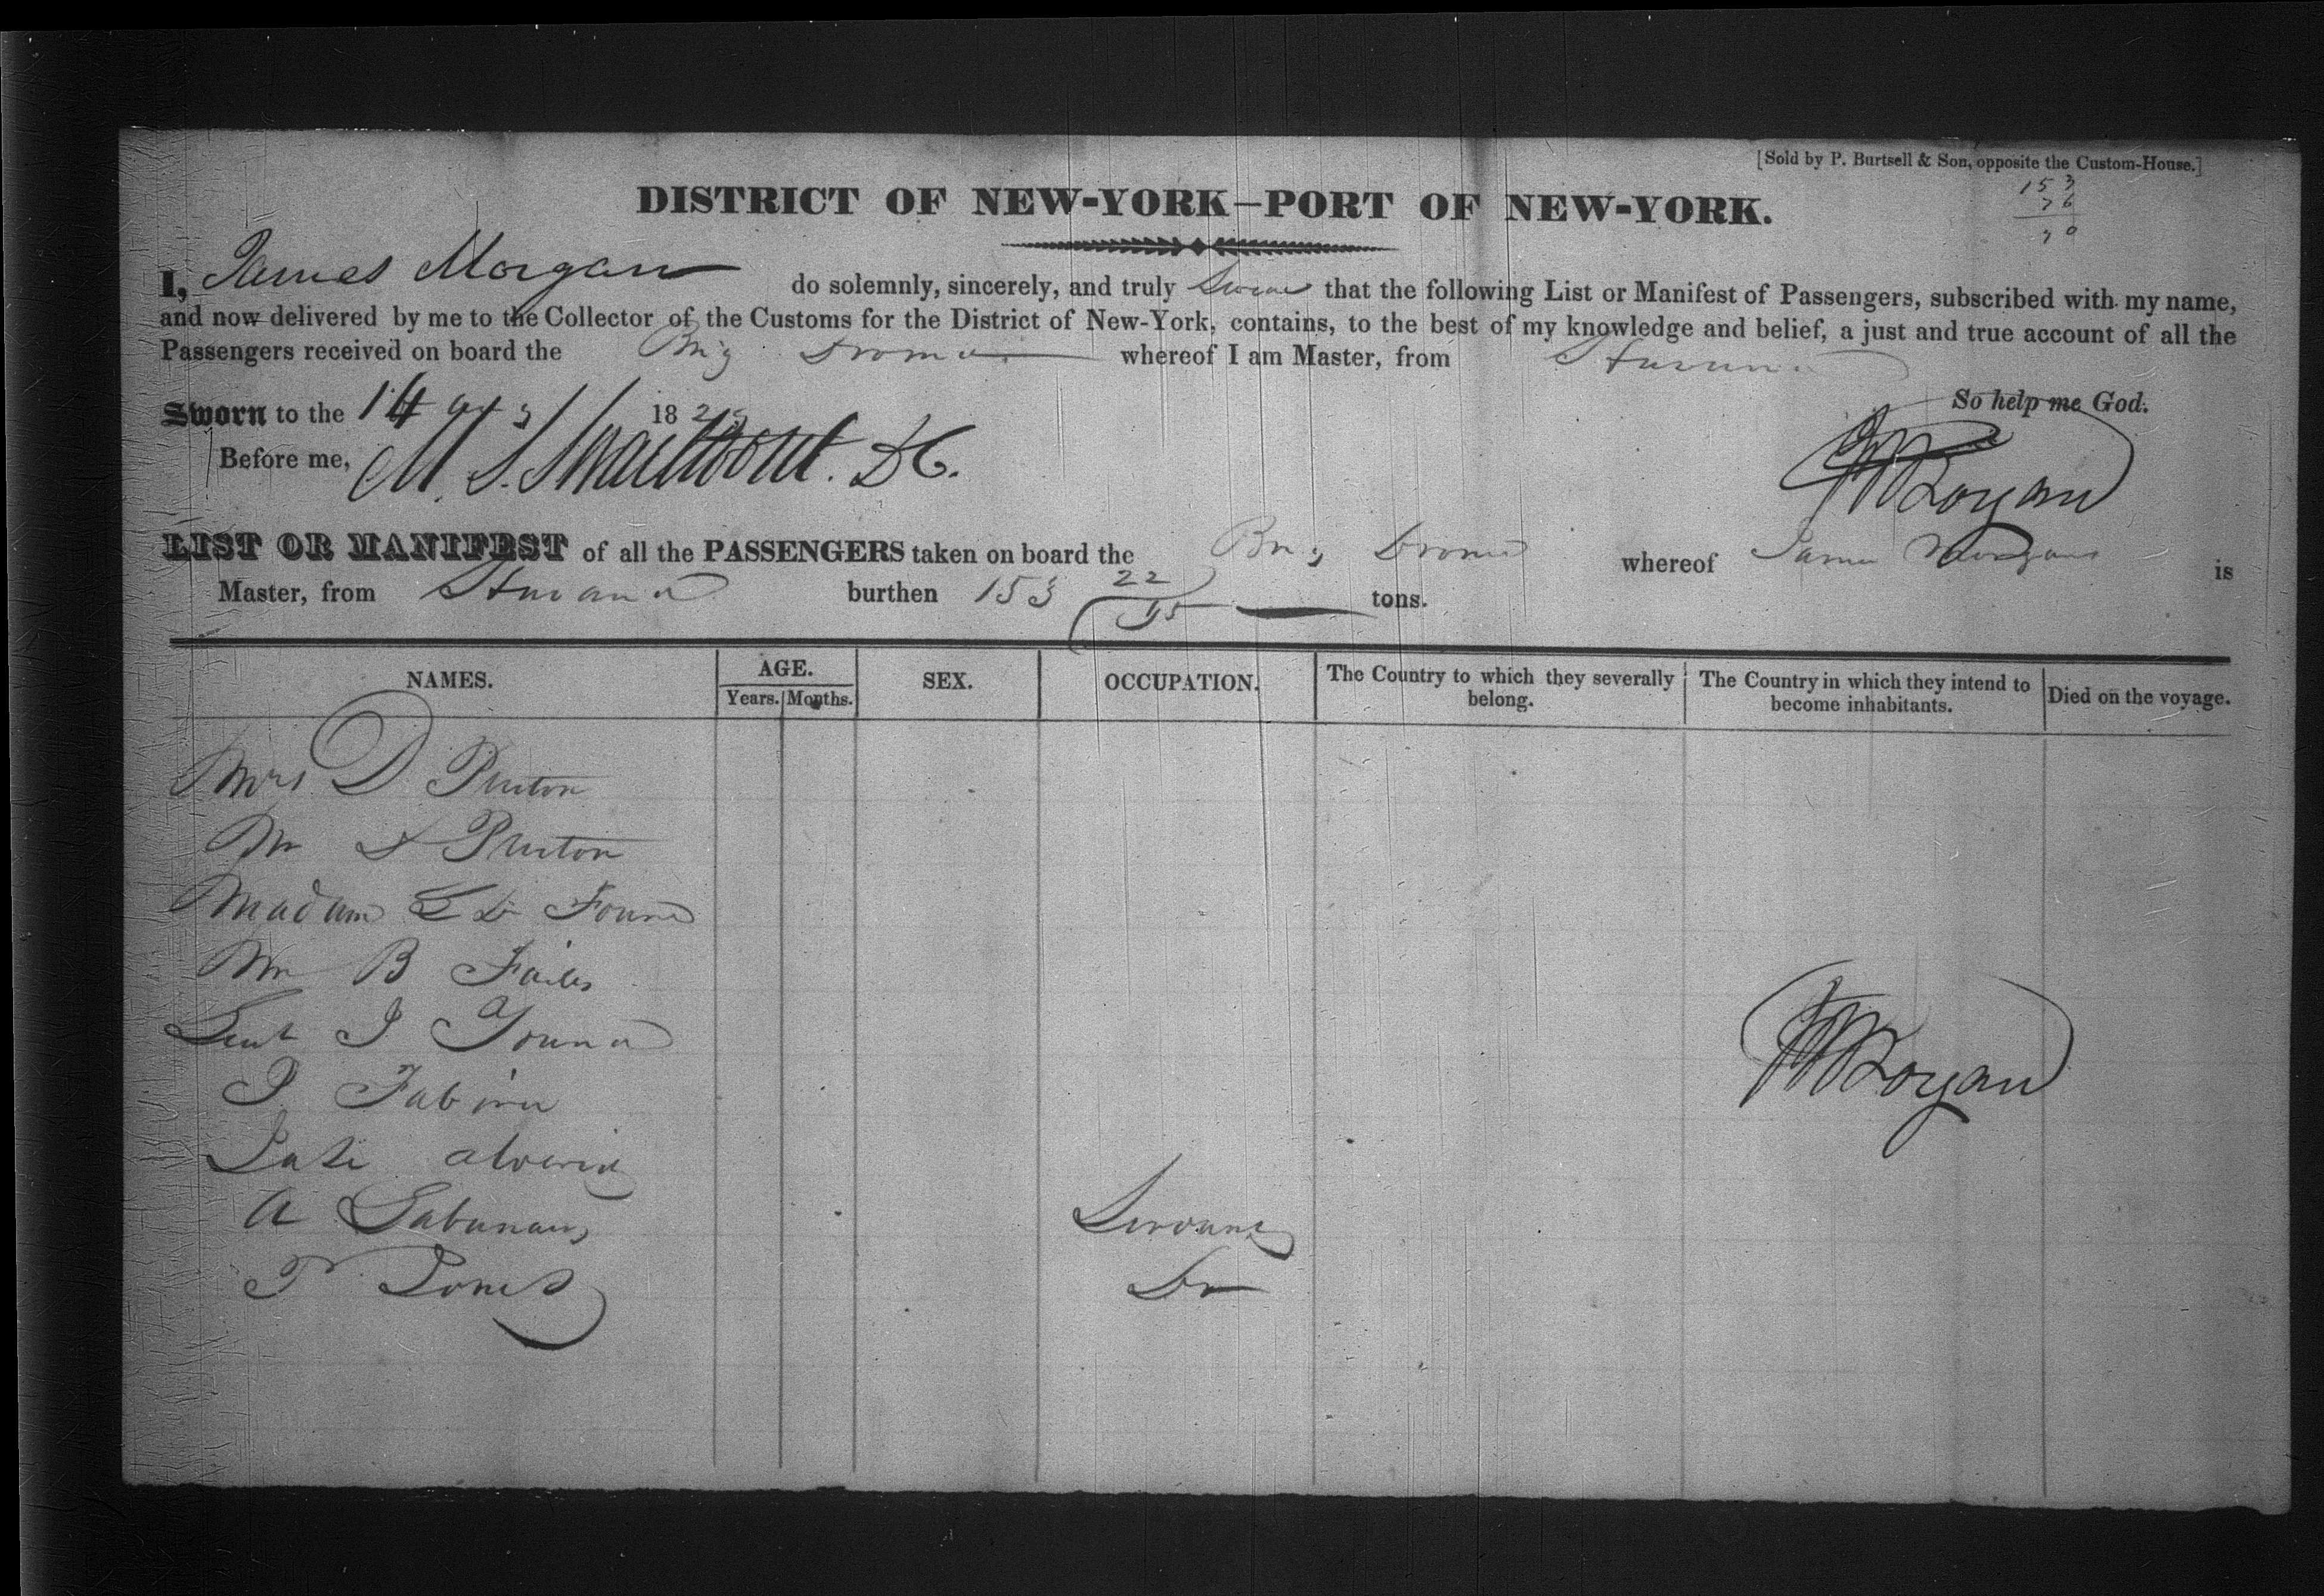 [Sold by P. Burtsell & Son, opposite the Custom-House.]
153
76
DISTRICT OF NEW-YORK—PORT OF NEW-YORK.
I, James Morgan do solemnly, sincerely, and truly Swear that the following List or Manifest of Passengers, subscribed with my name,
and now delivered by me to the Collector of the Customs for the District of New-York, contains, to the best of my knowledge and belief, a just and true account of all the
Passengers received on board the Brig Dromo whereof I am Master, from Havana
So help me God.
Sworn to the 14 1829
Before me, M. S. Swartwout. DC.
J Morgan
LIST OR MANIFEST of all the PASSENGERS taken on board the Brig Dromo whereof James Morgan is
Master, from Havana burthen 153 22/95 tons.
NAMES. AGE. Years. Months. SEX. OCCUPATION. The Country to which they severally belong. The Country in which they intend to become inhabitants. Died on the voyage.
Mrs D Pruton
Mr D Pruton
Madam
Mr B
J
J
A Servant
T Jones Do
J Morgan